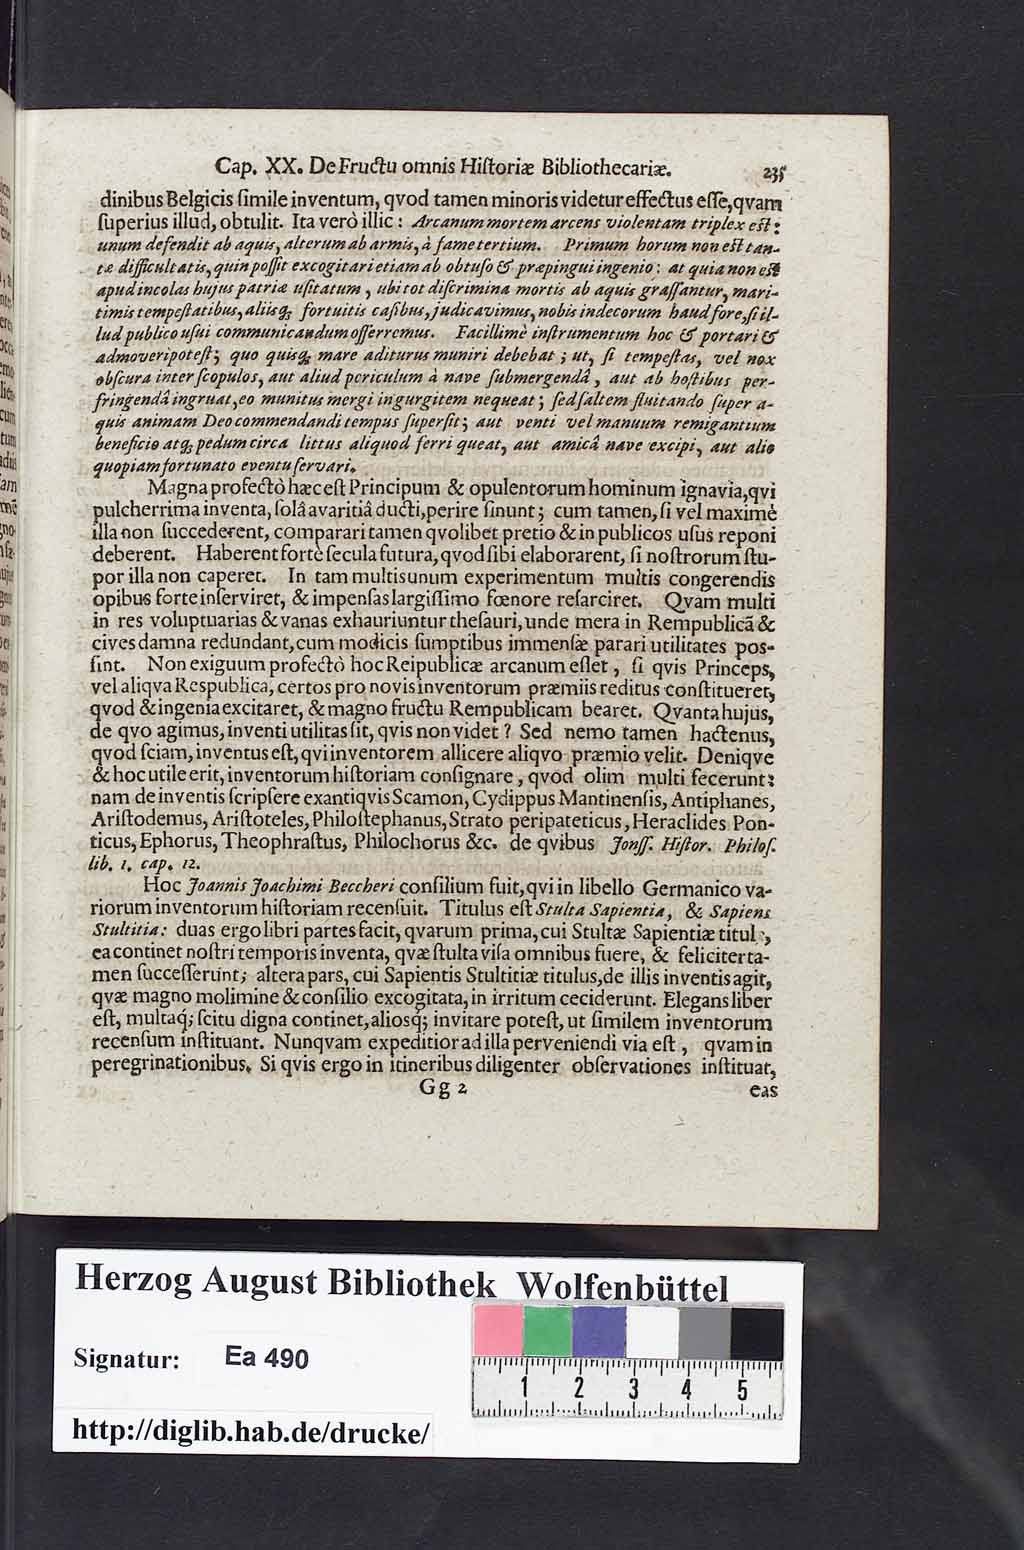 Cap. XX. De Fructu omnis Hiſtoriæ Bibliothecariæ. 235
dinibus Belgicis ſimile inventum, qvod tamen minoris videtur effectus eſſe, qvam
ſuperius illud, obtulit. Ita verò illic: Arcanum mortem arcens violentam triplex eſt:
unum defendit ab aquis, alterum ab armis, à fame tertium. Primum horum non eſt tan-
tæ difficultatis, quin poſſit excogitari etiam ab obtuſo & præpingui ingenio: at quia non eſt
apud incolas hujus patriæ uſitatum, ubi tot diſcrimina mortis ab aquis graſſantur, mari-
timis tempeſtatibus, aliisq; fortuitis caſibus, judicavimus, nobis indecorum haud fore, ſi il-
lud publico uſui communicandum offerremus. Facillimè inſtrumentum hoc & portari &
admoveri poteſt; quo quisq; mare aditurus muniri debebat; ut, ſi tempeſtas, vel nox
obſcura inter ſcopulos, aut aliud periculum à nave ſubmergendâ, aut ab hoſtibus per-
fringendâ ingruat, eo munitus mergi in gurgitem nequeat; ſed ſaltem fluitando ſuper a-
quis animam Deo commendandi tempus ſuperſit; aut venti vel manuum remigantium
beneficio atq; pedum circa littus aliquod ferri queat, aut amicâ nave excipi, aut alio
quopiam fortunato eventu ſervari.
Magna profectò hæc eſt Principum & opulentorum hominum ignavia, qvi
pulcherrima inventa, ſolâ avaritiâ ducti, perire ſinunt; cum tamen, ſi vel maximè
illa non ſuccederent, comparari tamen qvolibet pretio & in publicos uſus reponi
deberent. Haberent fortè ſecula futura, qvod ſibi elaborarent, ſi noſtrorum ſtu-
por illa non caperet. In tam multis unum experimentum multis congerendis
opibus forte inſerviret, & impenſas largiſſimo fœnore reſarciret. Qvam multi
in res voluptuarias & vanas exhauriuntur theſauri, unde mera in Rempublicã &
cives damna redundant, cum modicis ſumptibus immenſæ parari utilitates pos-
ſint. Non exiguum profectò hoc Reipublicæ arcanum eſſet, ſi qvis Princeps,
vel aliqva Respublica, certos pro novis inventorum præmiis reditus conſtitueret,
qvod & ingenia excitaret, & magno fructu Rempublicam bearet. Qvanta hujus,
de qvo agimus, inventi utilitas ſit, qvis non videt? Sed nemo tamen hactenus,
qvod ſciam, inventus eſt, qvi inventorem allicere aliqvo præmio velit. Deniqve
& hoc utile erit, inventorum hiſtoriam conſignare, qvod olim multi fecerunt:
nam de inventis ſcripſere ex antiqvis Scamon, Cydippus Mantinenſis, Antiphanes,
Ariſtodemus, Ariſtoteles, Philoſtephanus, Strato peripateticus, Heraclides Pon-
ticus, Ephorus, Theophraſtus, Philochorus &c. de qvibus Jonſſ. Hiſtor. Philoſ.
lib. 1. cap. 12.
Hoc Joannis Joachimi Beccheri conſilium fuit, qvi in libello Germanico va-
riorum inventorum hiſtoriam recenſuit. Titulus eſt Stulta Sapientia, & Sapiens
Stultitia: duas ergo libri partes facit, qvarum prima, cui Stultæ Sapientiæ titul,
ea continet noſtri temporis inventa, qvæ ſtulta viſa omnibus fuere, & feliciter ta-
men ſucceſſerunt; altera pars, cui Sapientis Stultitiæ titulus, de illis inventis agit,
qvæ magno molimine & conſilio excogitata, in irritum ceciderunt. Elegans liber
eſt, multaq; ſcitu digna continet, aliosq; invitare poteſt, ut ſimilem inventorum
recenſum inſtituant. Nunqvam expeditior ad illa perveniendi via eſt, qvam in
peregrinationibus. Si qvis ergo in itineribus diligenter obſervationes inſtituat,
Gg 2 eas
Herzog August Bibliothek Wolfenbüttel
Signatur: Ea 490
1 2 3 4 5
http://diglib.hab.de/drucke/